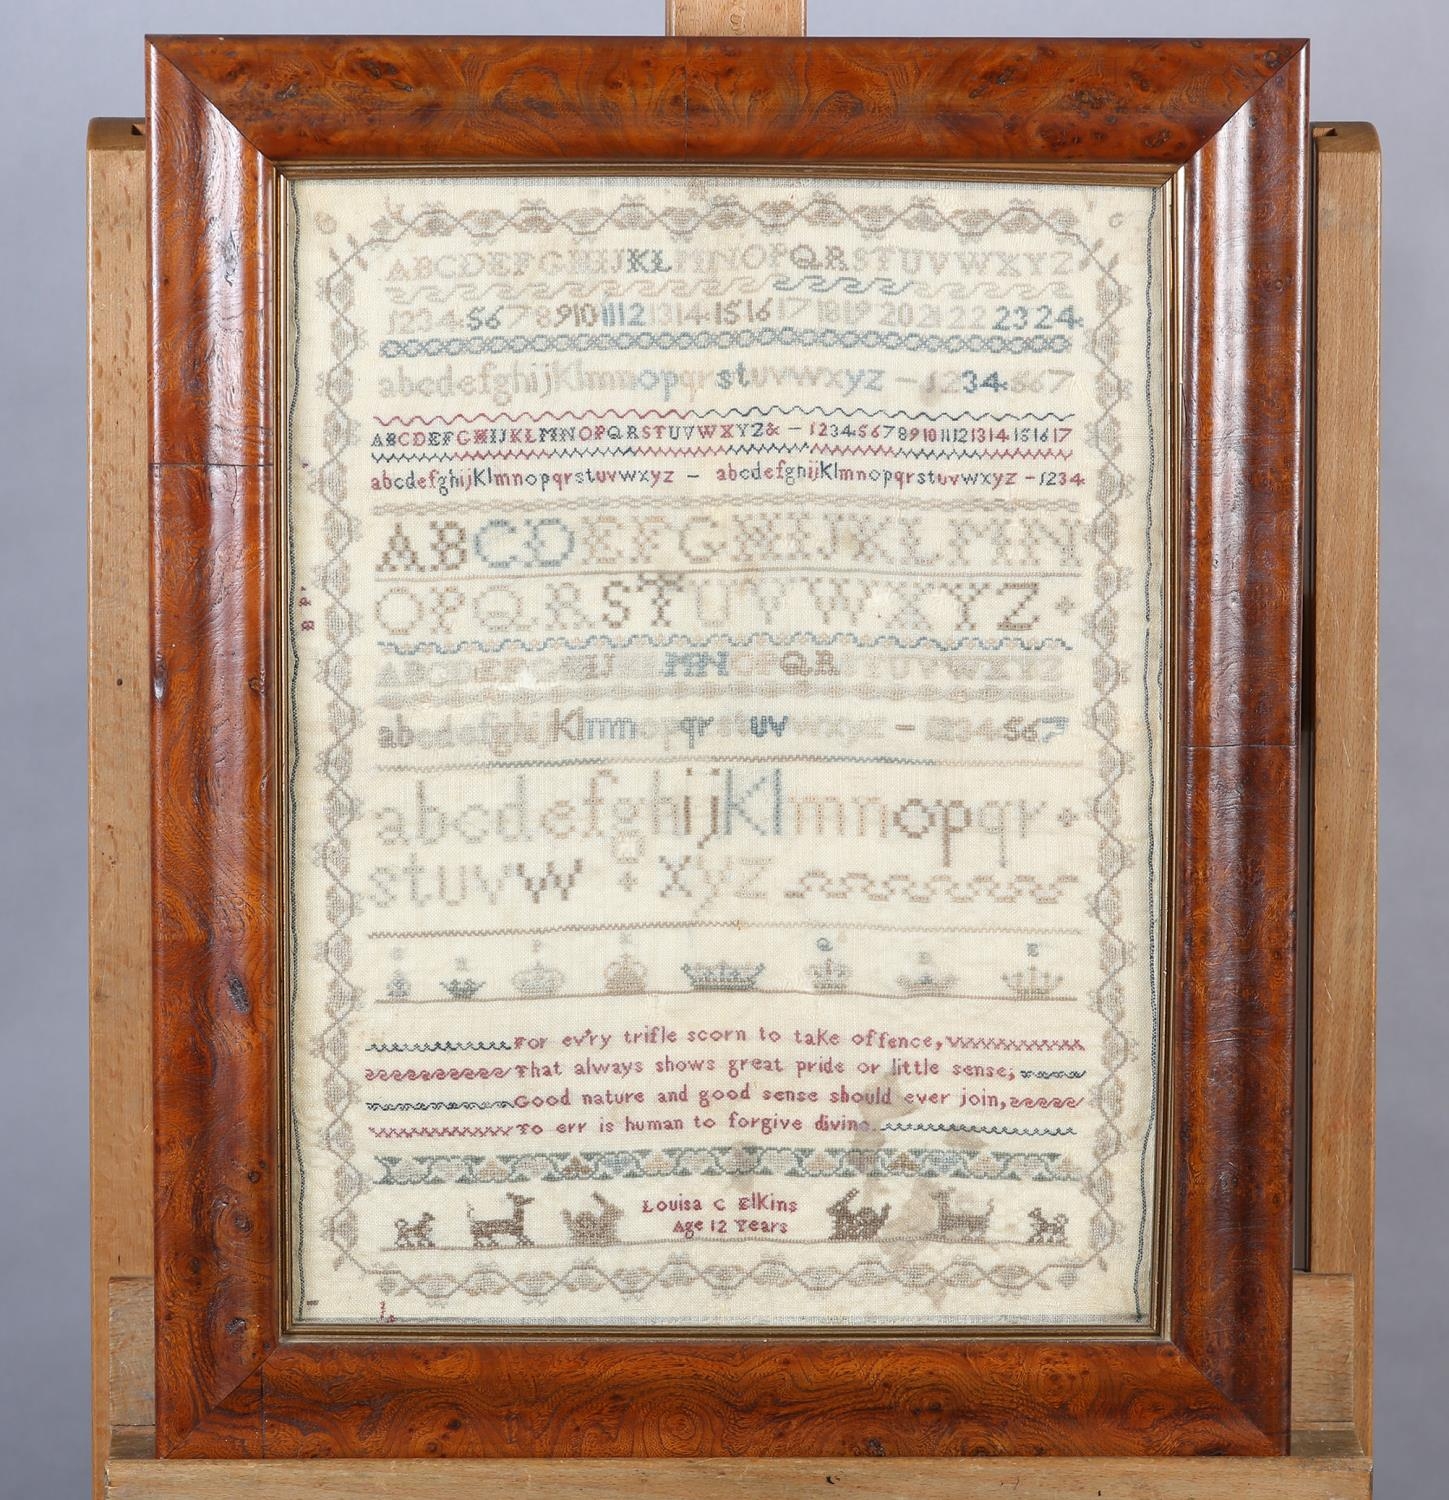 ABCDEFGHIJKLMNOPQRSTUVWXYZ
123456789101112131415161718192021222324
abcdefghijklmnopqrstuvwxyz - 1234567
ABCDEFGHIJKLMNOPQRSTUVWXYZ& - 1234567891011121314151617
abcdefghijklmnopqrstuvwxyz - abcdefghijklmnopqrstuvwxyz - 1234
ABCDEFGHIJKLMN
OPQRSTUVWXYZ
ABCDEFGHIJKLMNOPQRSTUVWXYZ
abcdefghijklmnopqrstuvwxyz - 1234567
abcdefghijklmnopqr
stuvw xyz
For ev'ry trifle scorn to take offence,
That always shows great pride or little sense;
Good nature and good sense should ever join,
To err is human to forgive divine.
Louisa C Elkins
Age 12 Years